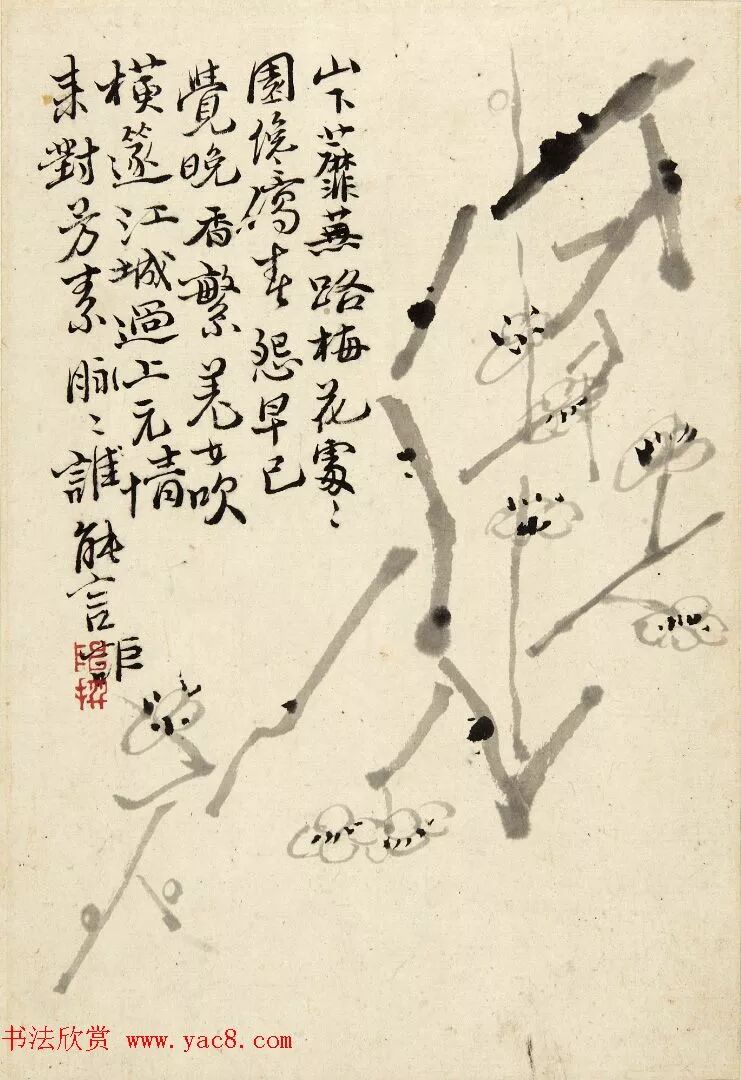 山下蘼蕪路梅花處〻
園春怨早已
覺晚香繁羌女吹
橫篴江城過上元情
來對芳素脉〻誰能言
书法欣赏 www.yac8.com